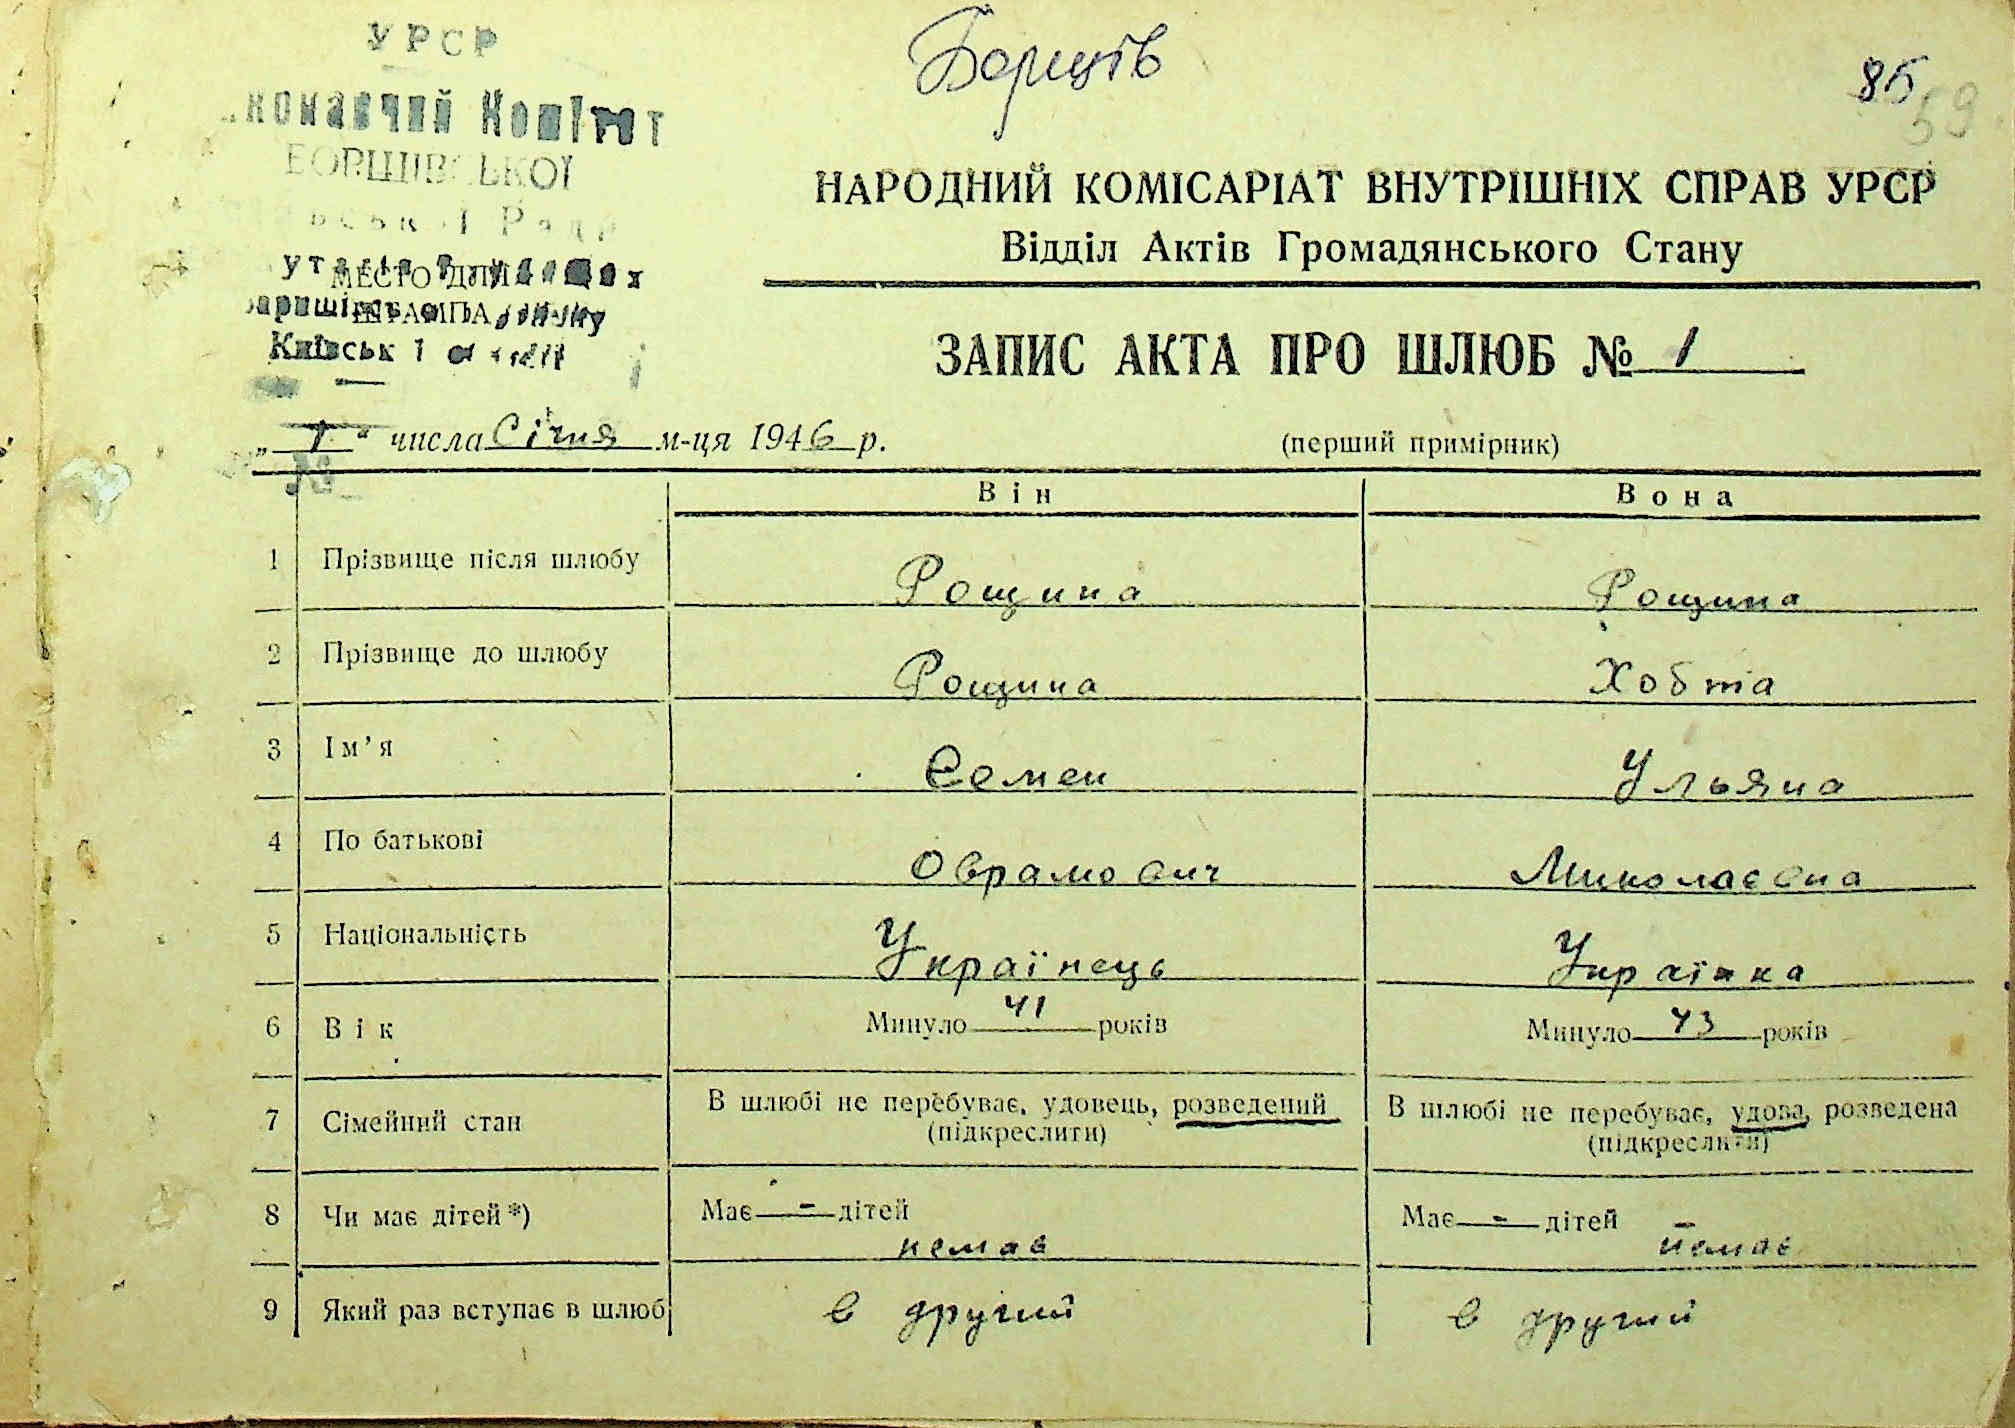 УРСР
Борщів
85
59
НАРОДНИЙ КОМІСАРІАТ ВНУТРІШНІХ СПРАВ УРСР
Відділ Актів Громадянського Стану
МЕСТО ДЛЯ
ШТАМПА
ЗАПИС АКТА ПРО ШЛЮБ № 1
„ 1 “ числа Січня м-ця 1946 р. (перший примірник)
Він Вона
1 Прізвище після шлюбу Рощина Рощина
2 Прізвище до шлюбу Рощина Хобта
3 Ім’я Семен Ульяна
4 По батькові Оврамович Миколаєвна
5 Національність Українець Українка
6 Вік Минуло 41 років Минуло 43 років
7 Сімейний стан В шлюбі не перебуває, удовець, розведений (підкреслити) В шлюбі не перебуває, удова, розведена (підкреслити)
8 Чи має дітей *) Має - дітей немає Має - дітей немає
9 Який раз вступає в шлюб в другий в другий